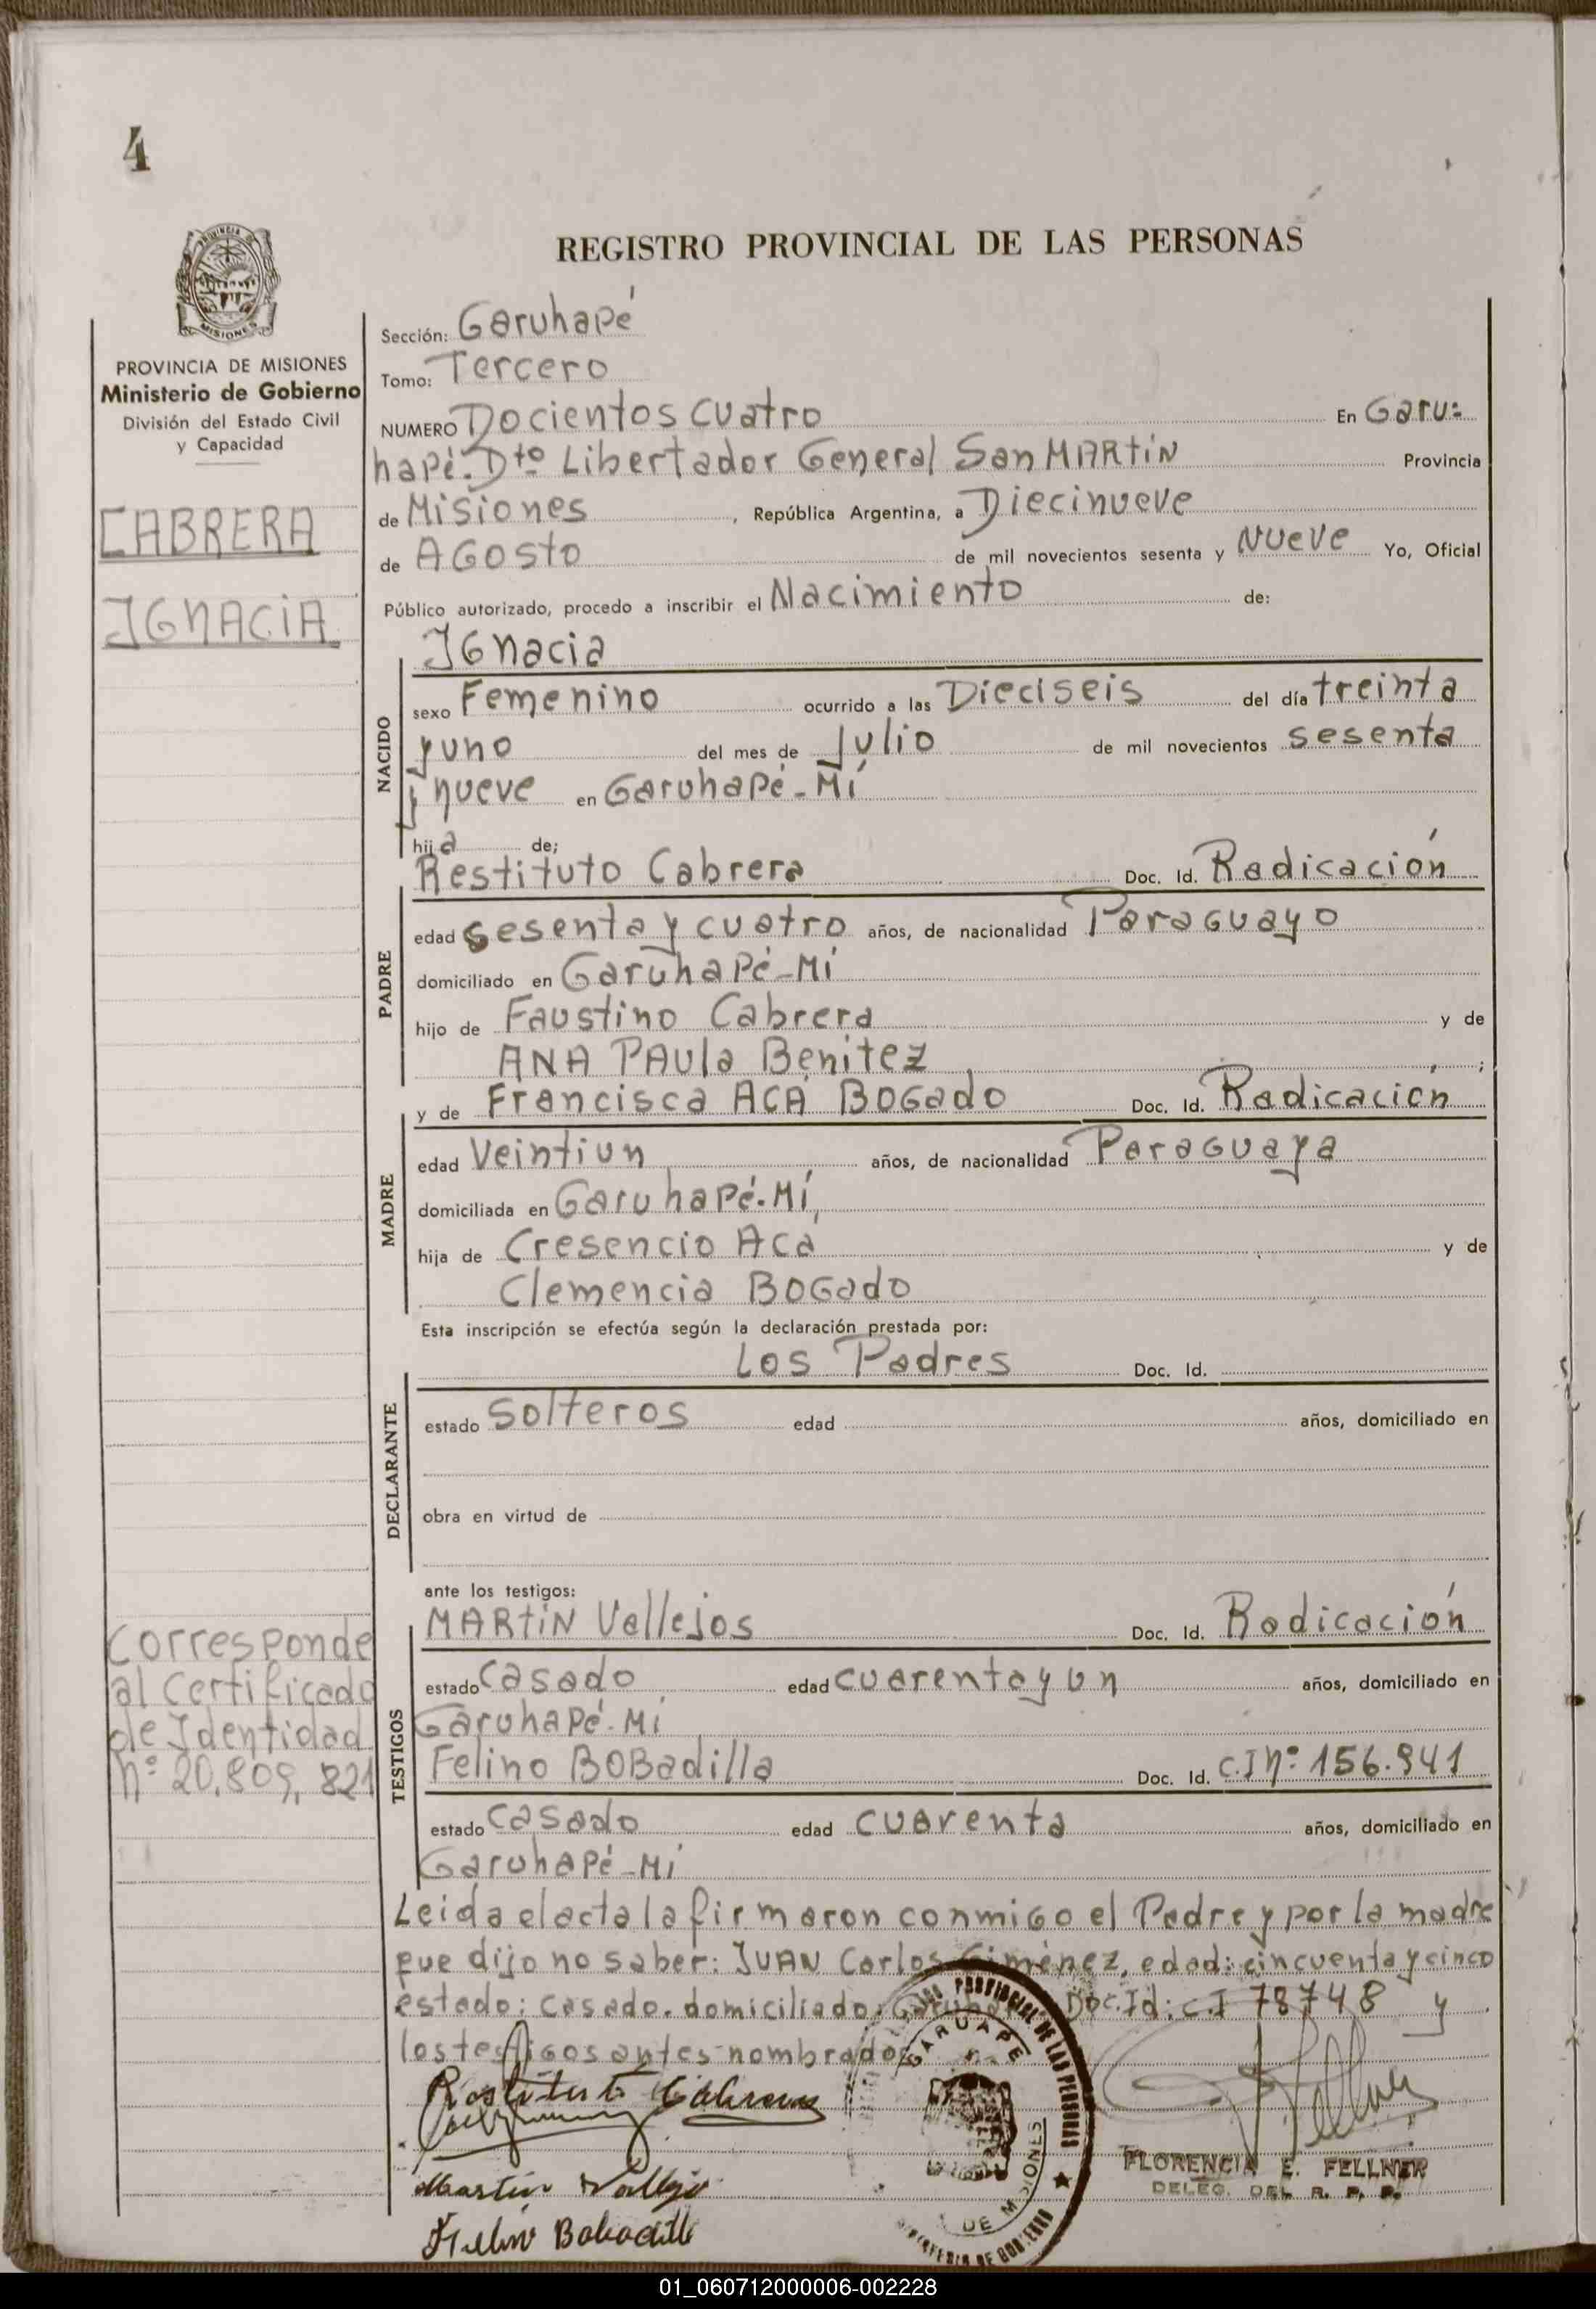 4
REGISTRO PROVINCIAL DE LAS PERSONAS
MISIONES
PROVINCIA DE MISIONES
Ministerio de Gobierno
División del Estado Civil
y Capacidad
CABRERA
IGNACIA
Sección: Garuhapé
Tomo: Tercero
NUMERO Docientos cuatro En Garu=
hapé. Dto Libertador General San MARTíN Provincia
de Misiones, República Argentina, a Diecinueve
de AGosto de mil novecientos sesenta y Nueve Yo, Oficial
Público autorizado, procedo a inscribir el Nacimiento de:
IGnacia
NACIDO
sexo Femenino ocurrido a las Dieciseis del día treinta
y uno del mes de Julio de mil novecientos sesenta
y nueve en Garuhapé-Mí
hija de;
Restituto Cabrera Doc. Id. Radicación
PADRE
edad sesenta y cuatro años, de nacionalidad Paraguayo
domiciliado en Garuhapé-Mí
hijo de Faustino Cabrera y de
ANA PAula Benitez;
y de Francisca ACÁ BOGado Doc. Id. Radicación
MADRE
edad Veintiun años, de nacionalidad Paraguaya
domiciliada en Garuhapé-Mí,
hija de Cresencio Acá y de
Clemencia BOGado
Esta inscripción se efectúa según la declaración prestada por:
Los Padres Doc. Id.
DECLARANTE
estado Solteros edad años, domiciliado en
obra en virtud de
ante los testigos:
MARTíN Vallejos Doc. Id. Radicación
TESTIGOS
estado Casado edad cuarenta y un años, domiciliado en
Garuhapé-Mí
Felino BOBadilla Doc. Id. C.I nº 156.941
estado Casado edad cuarenta años, domiciliado en
Garuhapé-Mí
Corresponde
al Certificado
de Identidad
Nº 20.809, 821
Leida el acta la firmaron conmigo el Padre y por la madre
que dijo no saber: JUAN Carlos Giménez, edad: cincuenta y cinco
estado: casado. domiciliado: Doc. Id: C.I 78748 y
los testigos antes nombrados
Restituto Cabrera
Martin Vallejo
Felino Bobadilla
PROVINCIAL DE LAS PERSONAS
GARUAPE
DE MISIONES
DE GOBIERNO
Fellner
FLORENCIA E. FELLNER
DELEG. DEL R. P. P.
01_060712000006-002228